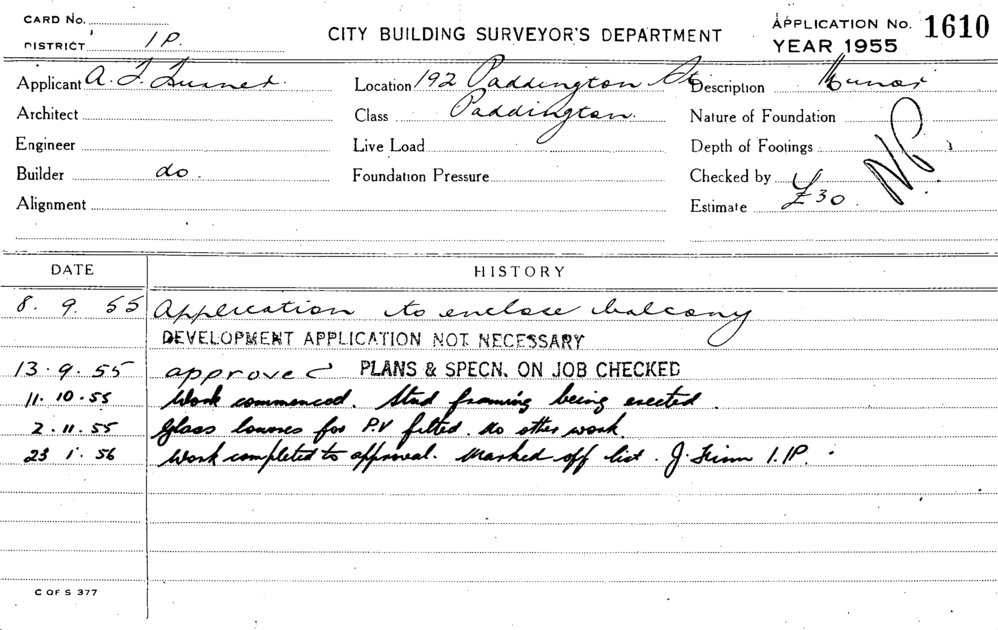 CARD No.
DISTRICT 1P.
CITY BUILDING SURVEYOR'S DEPARTMENT
APPLICATION No. 1610
YEAR 1955
Applicant A. F. Turner.
Location 192 Paddington St
Description Minor
Architect
Class Paddington.
Nature of Foundation
Engineer
Live Load
Depth of Footings
Builder do.
Foundation Pressure
Checked by
Alignment
Estimate £30.
DATE
HISTORY
8. 9. 55 Application to enclose balcony
DEVELOPMENT APPLICATION NOT NECESSARY
13.9.55 approved PLANS & SPECN. ON JOB CHECKED
11.10.55 Work commenced. Stud framing being erected.
2.11.55 Glass louvres for P.V fitted. No other work.
23 1. 56 Work completed to approval. Marked off list. J. 1.P.
C OF S 377